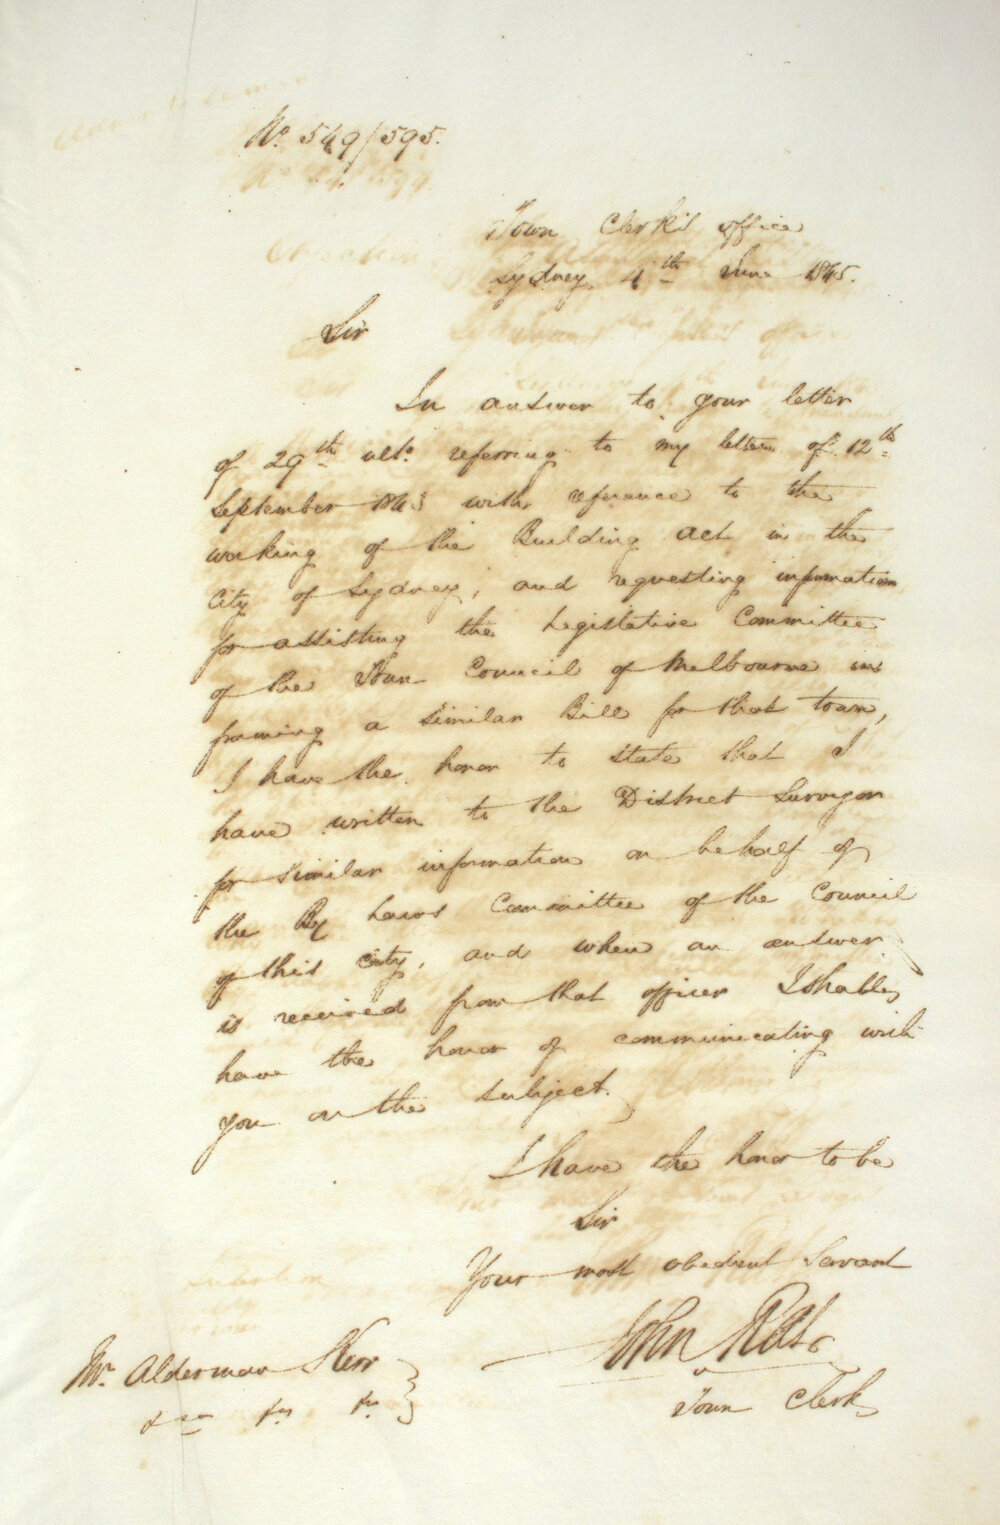 No. 549/595.
Town Clerk's office
Sydney 4th June 1845.
Sir
In answer to your letter
of 29th ulto. referring to my letter of 12th
September 1843 with reference to the
working of the Building act in the
City of Sydney, and requesting information
for assisting the Legislative Committee
of the Town Council of Melbourne in
framing a similar Bill for that town,
I have the honor to state that I
have written to the District Surveyor
for similar information on behalf of
the By Laws Committee of the Council
of this City, and when an answer
is received from that officer I shall
have the honor of communicating with
you on the subject.
I have the honor to be
Sir
Your most obedient Servant
John
Town Clerk
Mr. Alderman Kerr